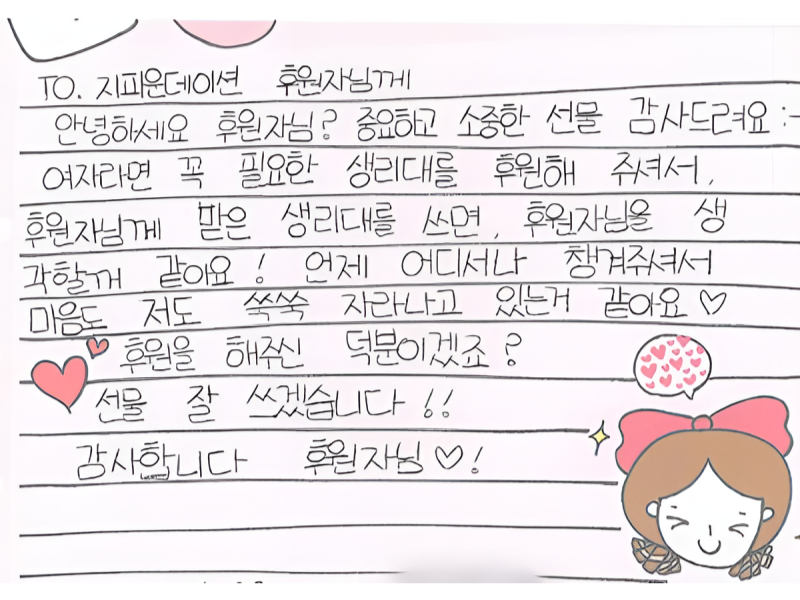 TO. 지파운데이션 후원자님께
안녕하세요 후원자님? 중요하고 소중한 선물 감사드려요 :-
여자라면 꼭 필요한 생리대를 후원해 주셔서,
후원자님께 맡은 생리대를 쓰면, 후원자님을 생
각할꺼 같아요! 언제 어디서나 챙겨주셔서
마음도 저도 쑥쑥 자라나고 있는거 같아요♡
후원을 해주신 덕분이겠죠?
선물 잘 쓰겠습니다!!
감사합니다 후원자님♡!